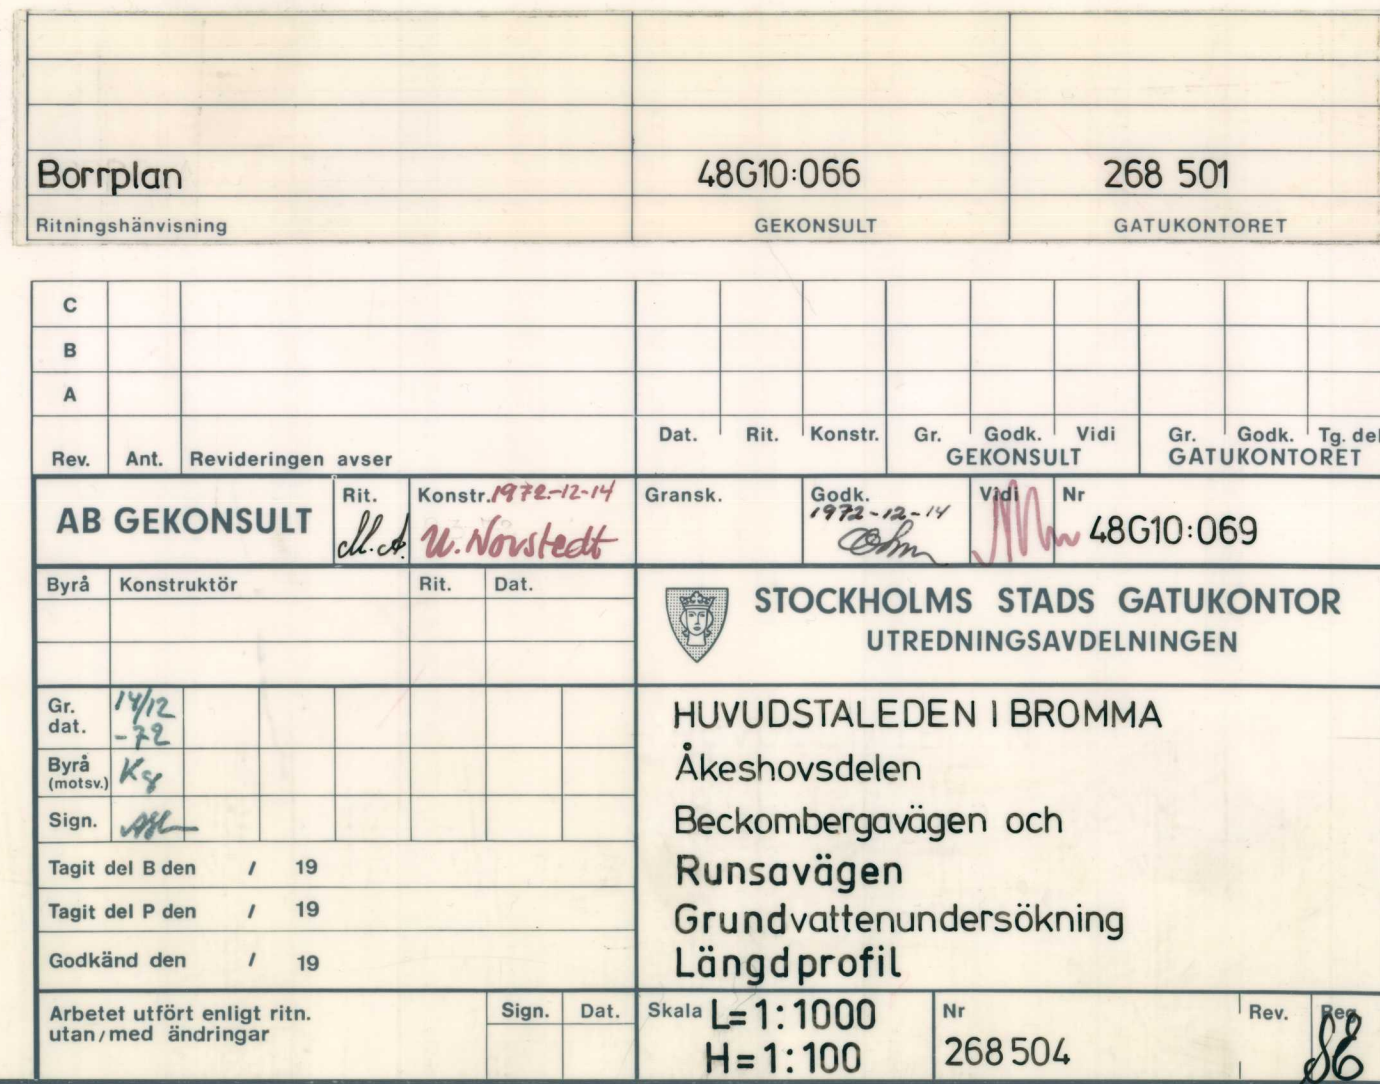 Borrplan 48G10:066 268 501
Ritningshänvisning GEKONSULT GATUKONTORET
C
B
A
Rev. Ant. Revideringen avser Dat. Rit. Konstr. Gr. Godk. Vidi Gr. Godk. Tg. del
GEKONSULT GATUKONTORET
AB GEKONSULT Rit. M.A. Konstr. 1972-12-14 U. Norstedt Gransk. Godk. 1972-12-14 Vidi Nr 48G10:069
Byrå Konstruktör Rit. Dat.
STOCKHOLMS STADS GATUKONTOR
UTREDNINGSAVDELNINGEN
Gr. dat. 14/12 -72
Byrå (motsv.) Kg
Sign.
Tagit del B den / 19
Tagit del P den / 19
Godkänd den / 19
HUVUDSTALEDEN I BROMMA
Åkeshovsdelen
Beckombergavägen och
Runsavägen
Grundvattenundersökning
Längdprofil
Arbetet utfört enligt ritn.
utan/med ändringar
Sign. Dat.
Skala L=1:1000
H=1:100
Nr 268 504
Rev. Reg